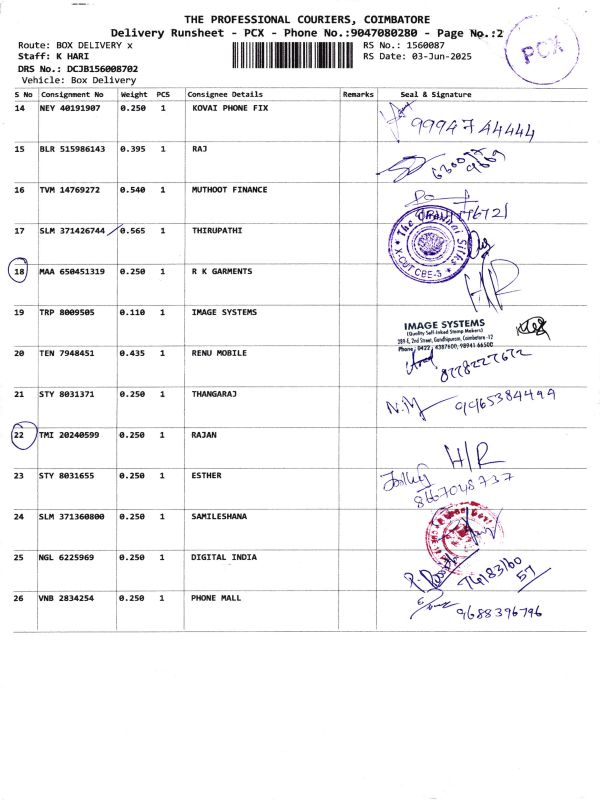 THE PROFESSIONAL COURIERS, COIMBATORE
Delivery Runsheet - PCX - Phone No.:9047080280 - Page No.:2
Route: BOX DELIVERY x
RS No.: 1560087
Staff: K HARI
RS Date: 03-Jun-2025
DRS No.: DCJB156008702
Vehicle: Box Delivery
PCX
S No Consignment No Weight PCS Consignee Details Remarks Seal & Signature
14 NEY 40191907 0.250 1 KOVAI PHONE FIX
9994744444
15 BLR 515986143 0.395 1 RAJ
16 TVM 14769272 0.540 1 MUTHOOT FINANCE
17 SLM 371426744 0.565 1 THIRUPATHI
X-CUT CBE-3
18 MAA 650451319 0.250 1 R K GARMENTS
H/R
19 TRP 8009505 0.110 1 IMAGE SYSTEMS
IMAGE SYSTEMS
(Quality Self-Inked Stamp Makers)
289-E, 2nd Street, Gandhipuram, Coimbatore -12
Phone : 0422 : 4387600, 98941 66500
20 TEN 7948451 0.435 1 RENU MOBILE
8778227672
21 STY 8031371 0.250 1 THANGARAJ
9965384499
22 TMI 20240599 0.250 1 RAJAN
H/R
23 STY 8031655 0.250 1 ESTHER
8667048737
24 SLM 371360800 0.250 1 SAMILESHANA
25 NGL 6225969 0.250 1 DIGITAL INDIA
26 VNB 2834254 0.250 1 PHONE MALL
9688396796